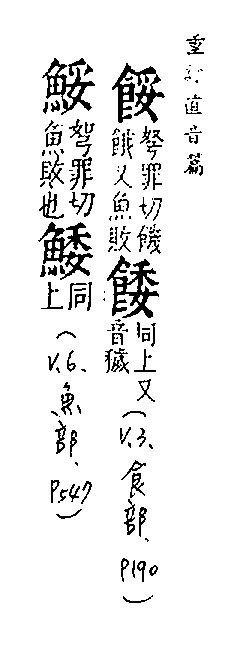 重訂直音篇
餒弩罪切饑餓又魚敗餧同上又音獩(V.3.食部、P190)
鮾弩罪切魚敗也鯘同上(V.6.魚部、P547)